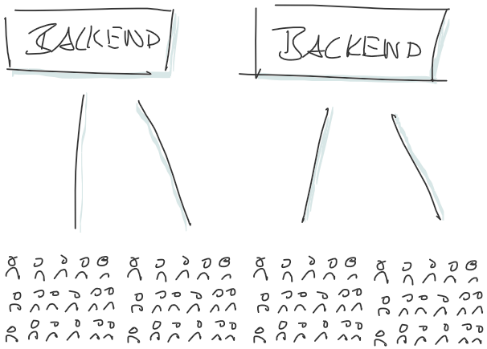 BACKEND
BACKEND